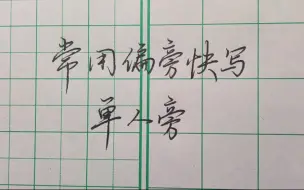 常用偏旁快写
单人旁